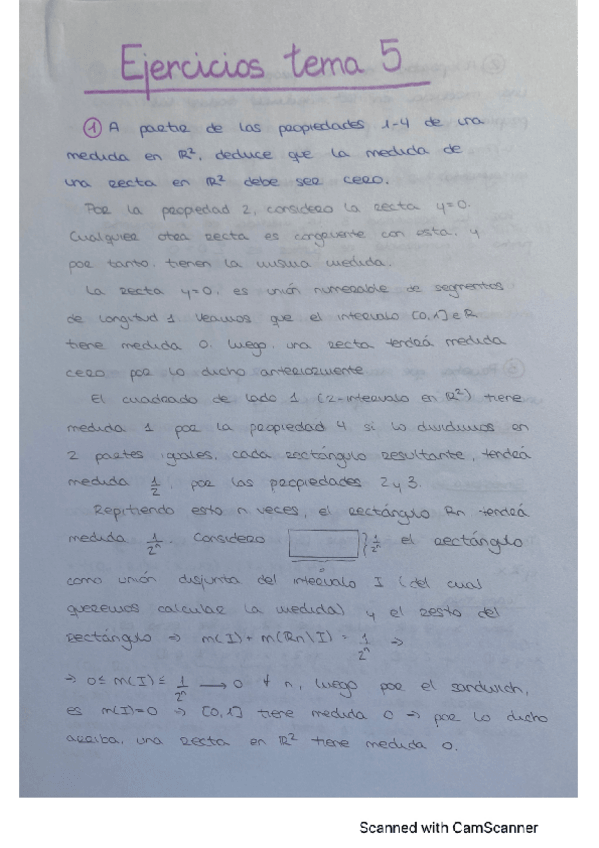 Ejercicios tema 5
① A partir de las propiedades 1-4 de una
medida en ℝ², deduce que la medida de
una recta en ℝ² debe ser cero.
Por la propiedad 2, considero la recta y=0.
Cualquier otra recta es congruente con esta, y
por tanto, tienen la misma medida.
La recta y=0, es unión numerable de segmentos
de longitud 1. Veamos que el intervalo [0,1]∈ℝ
tiene medida 0. Luego, una recta tendrá medida
cero por lo dicho anteriormente.
El cuadrado de lado 1 (2-intervalo en ℝ²) tiene
medida 1 por la propiedad 4. Si lo dividimos en
2 partes iguales, cada rectángulo resultante, tendrá
medida 1/2, por las propiedades 2 y 3.
Repitiendo esto n veces, el rectángulo Rn tendrá
medida 1/2ⁿ. Considero }1/2ⁿ el rectángulo
como unión disjunta del intervalo I (del cual
queremos calcular la medida) y el resto del
rectángulo ⇒ m(I)+m(Rn\I) = 1/2ⁿ ⇒
⇒ 0≤ m(I) ≤ 1/2ⁿ → 0 ∀ n, luego por el sandwich,
es m(I)=0 ⇒ [0,1] tiene medida 0 ⇒ por lo dicho
arriba, una recta en ℝ² tiene medida 0.
Scanned with CamScanner